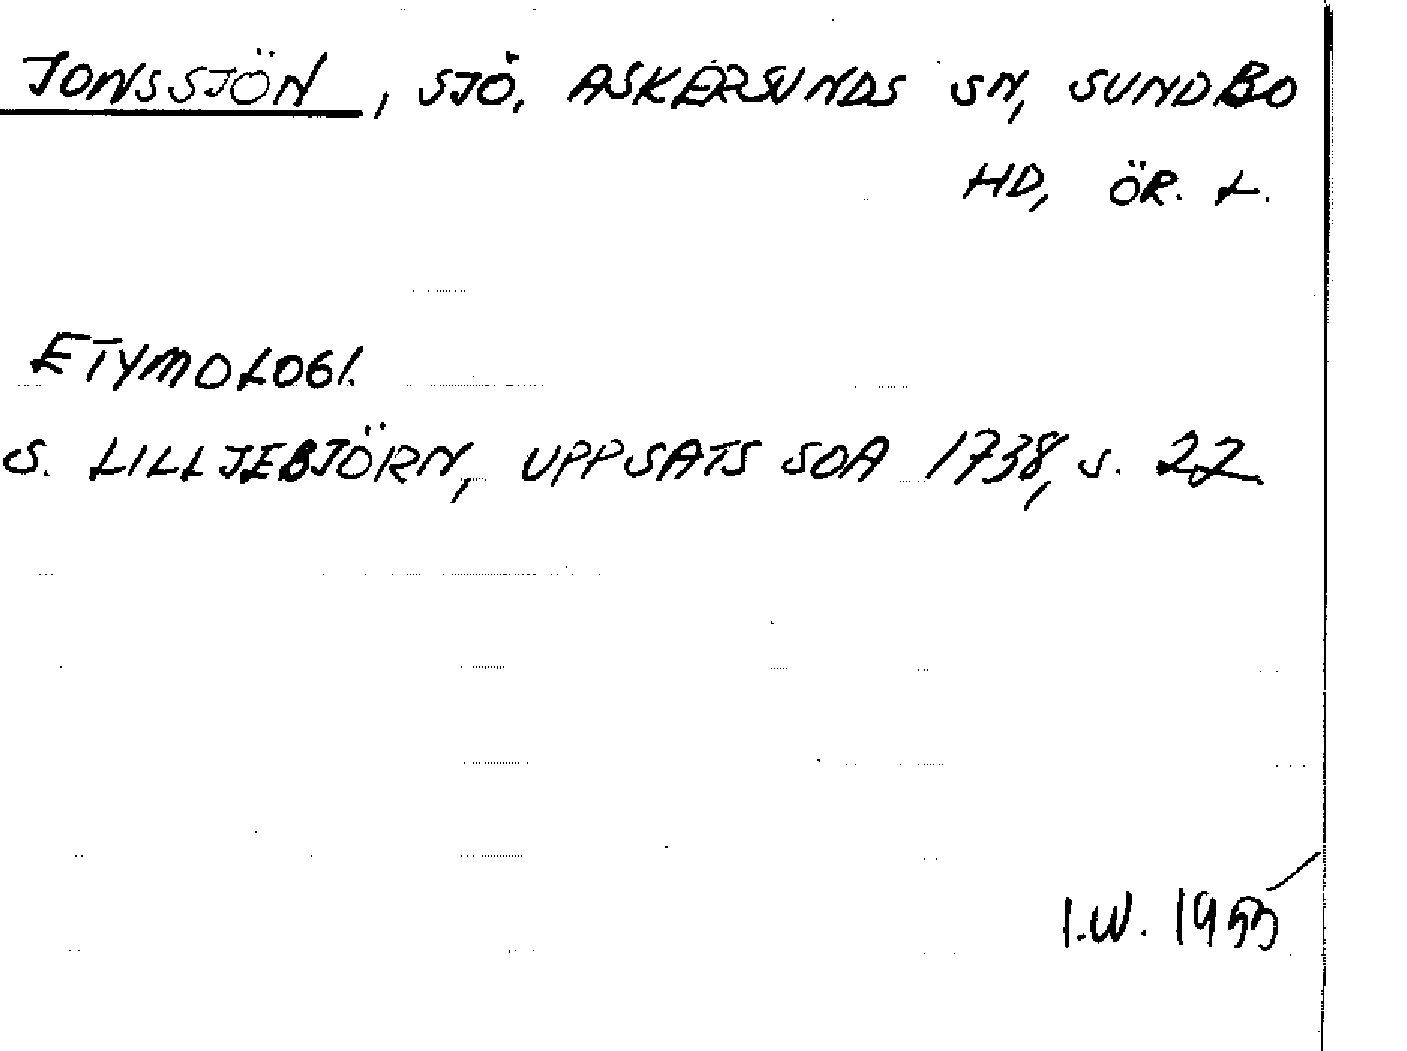 JONSSJÖN, SJÖ, ASKERSUNDS SN, SUNDBO
HD, ÖR. L.
ETYMOLOGI.
S. LILLJEBJÖRN, UPPSATS SOA 1738, s. 22
I.W. 1955